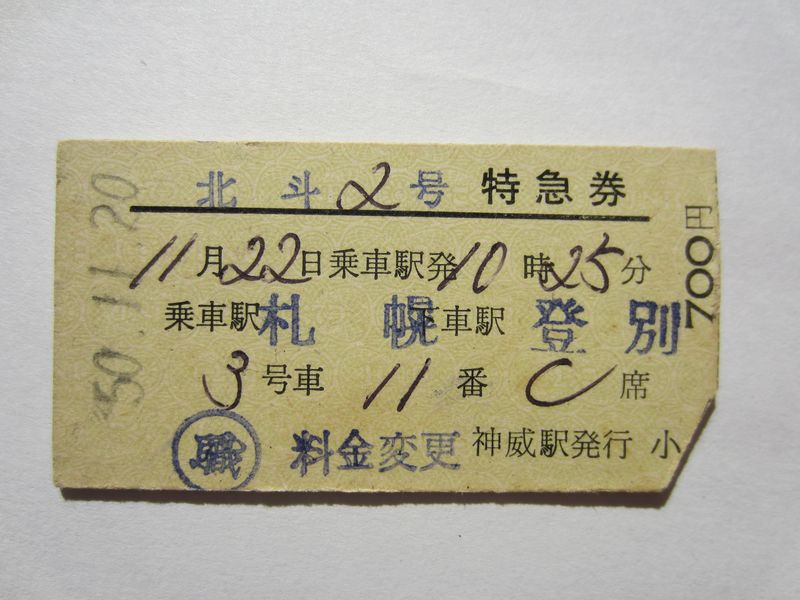 北斗2号 特急券
11月22日乗車駅発10時25分
乗車駅 札幌 下車駅 登別
3号車 11番 C席
職 料金変更 神威駅発行 小
700円
50.11.20